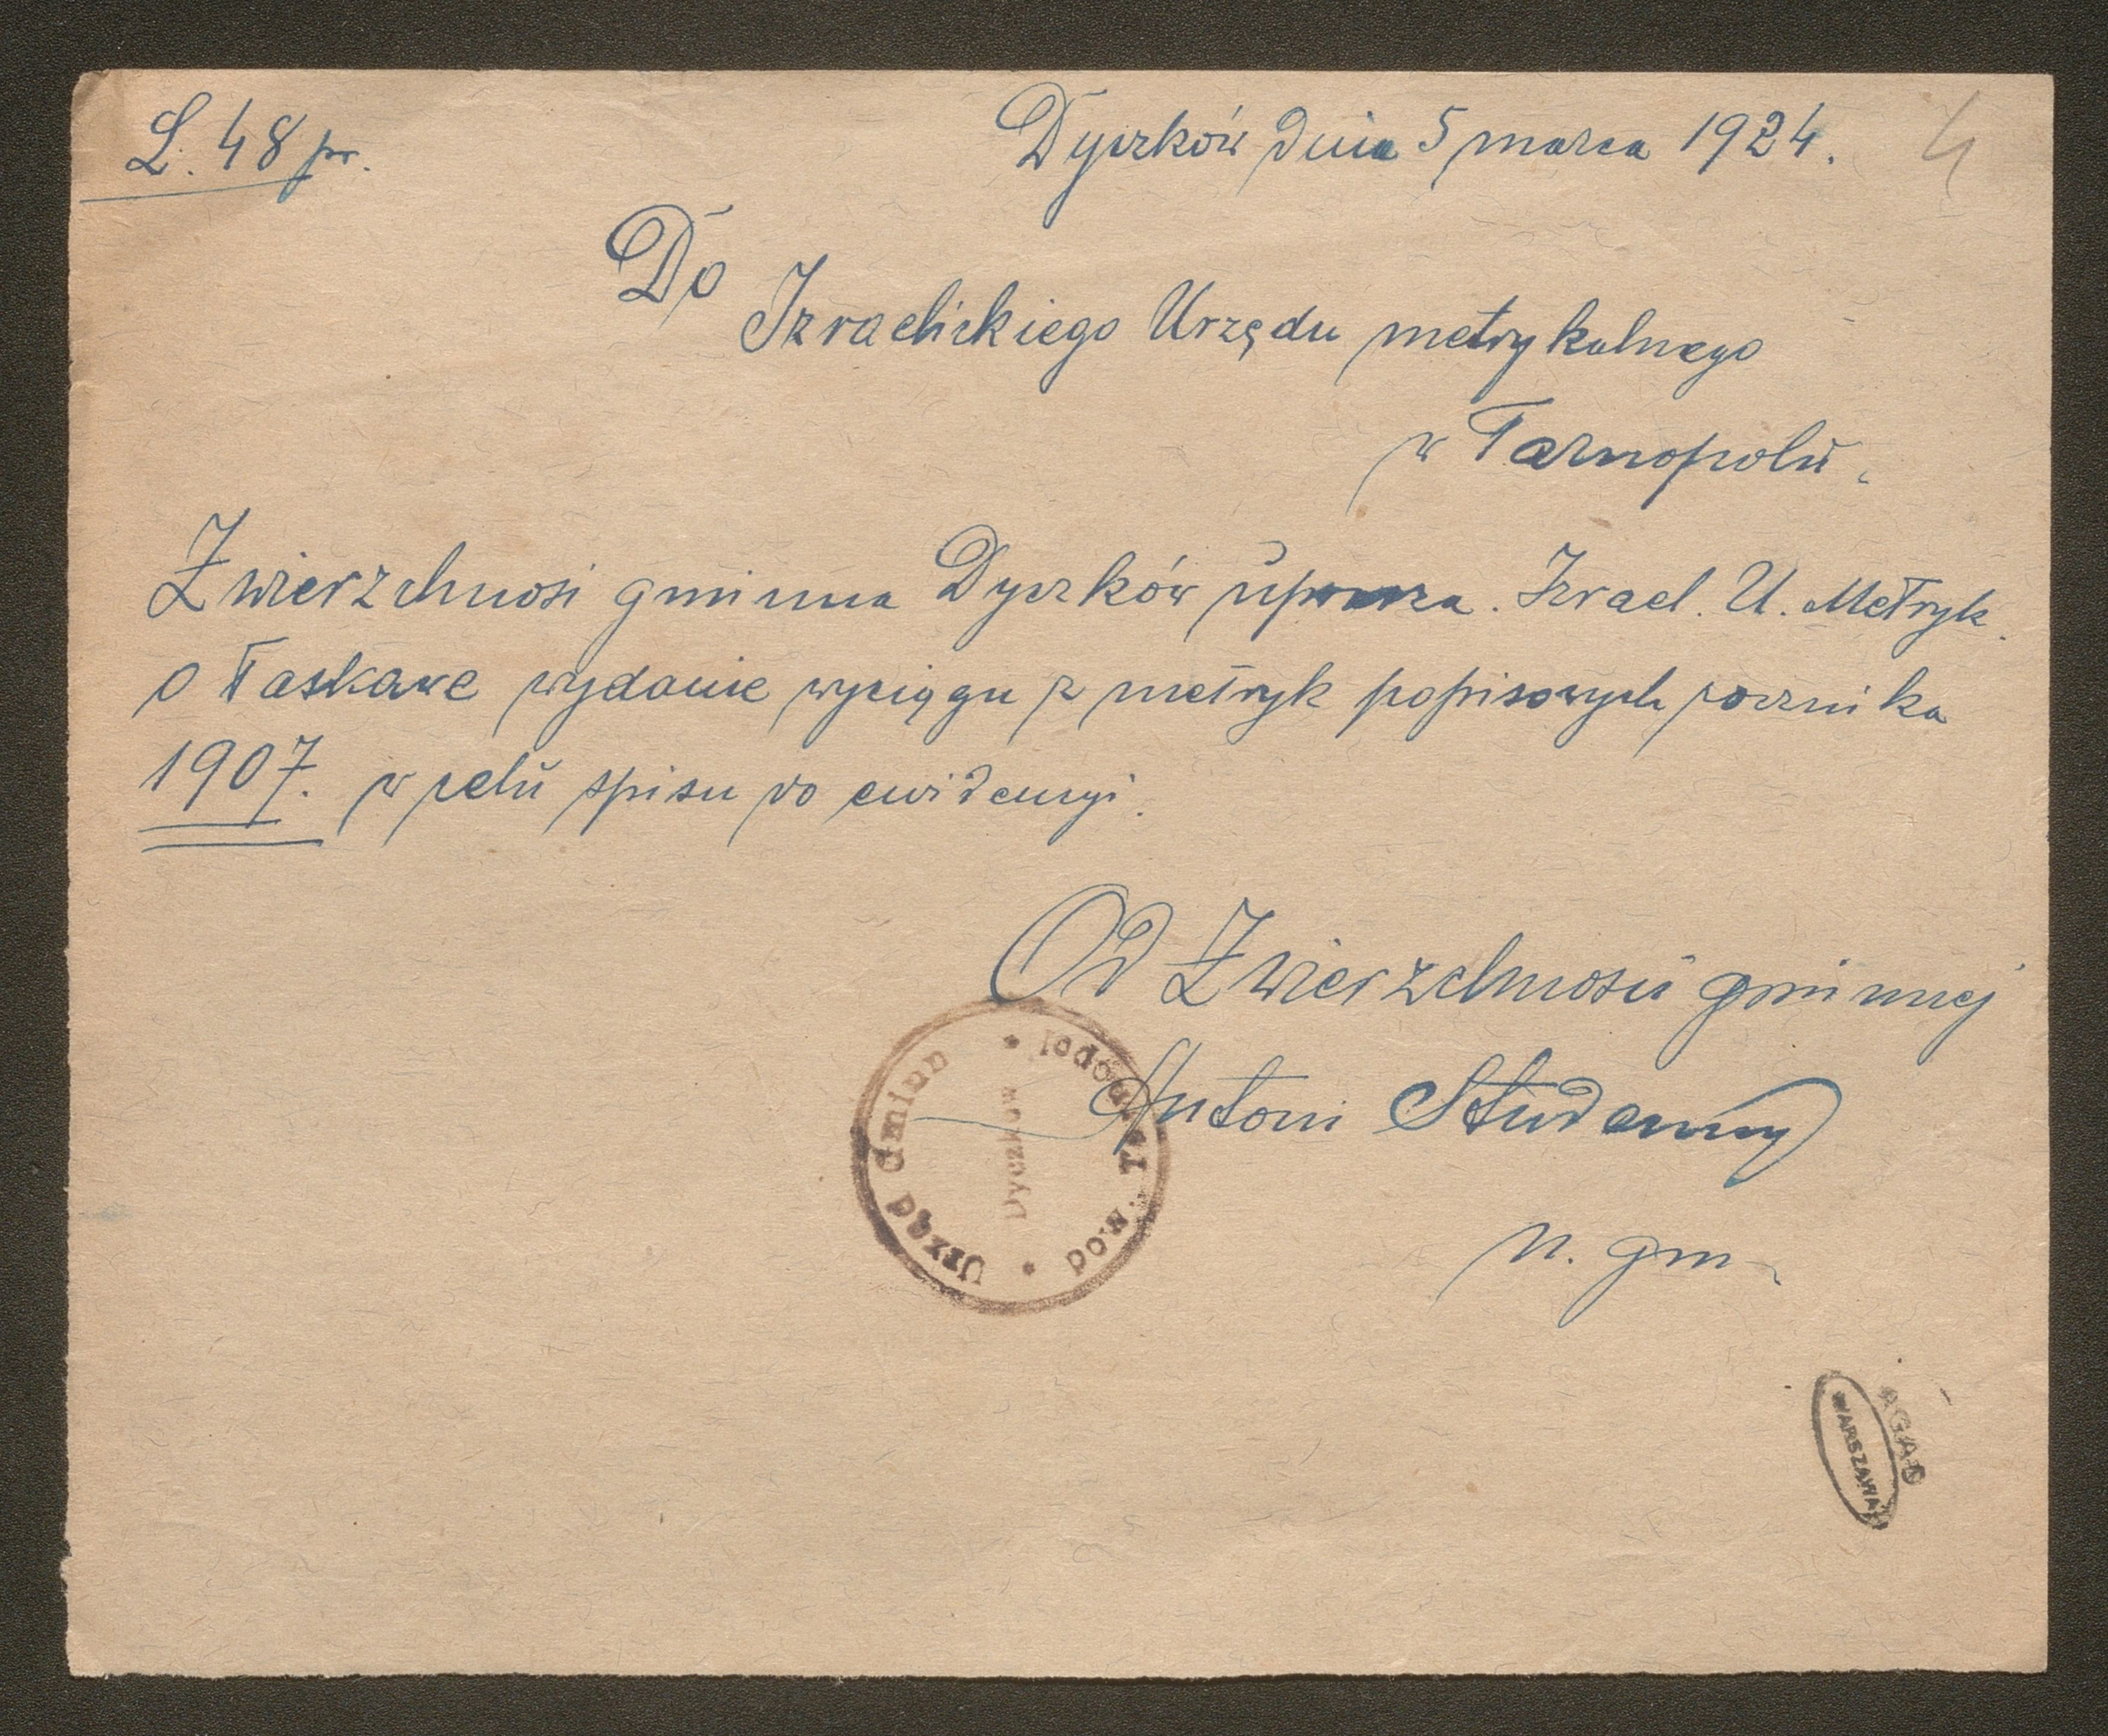 L. 48 pr.
Dyczków dnia 5 marca 1924.
4
Do
Izraelickiego Urzędu metrykalnego
w Tarnopolu.
Zwierzchnosi gminna Dyczków uprasza. Izrael. U. Metryk.
o łaskawe wydanie wyciągu z metryk popisowych rocznika
1907. w celu spisu do ewidencyi.
Od Zwierzchnosci gminnej
Antoni Studenny
n. gm.
Urząd Gminy
Dyczków
pow.
AGAD
WARSZAWA